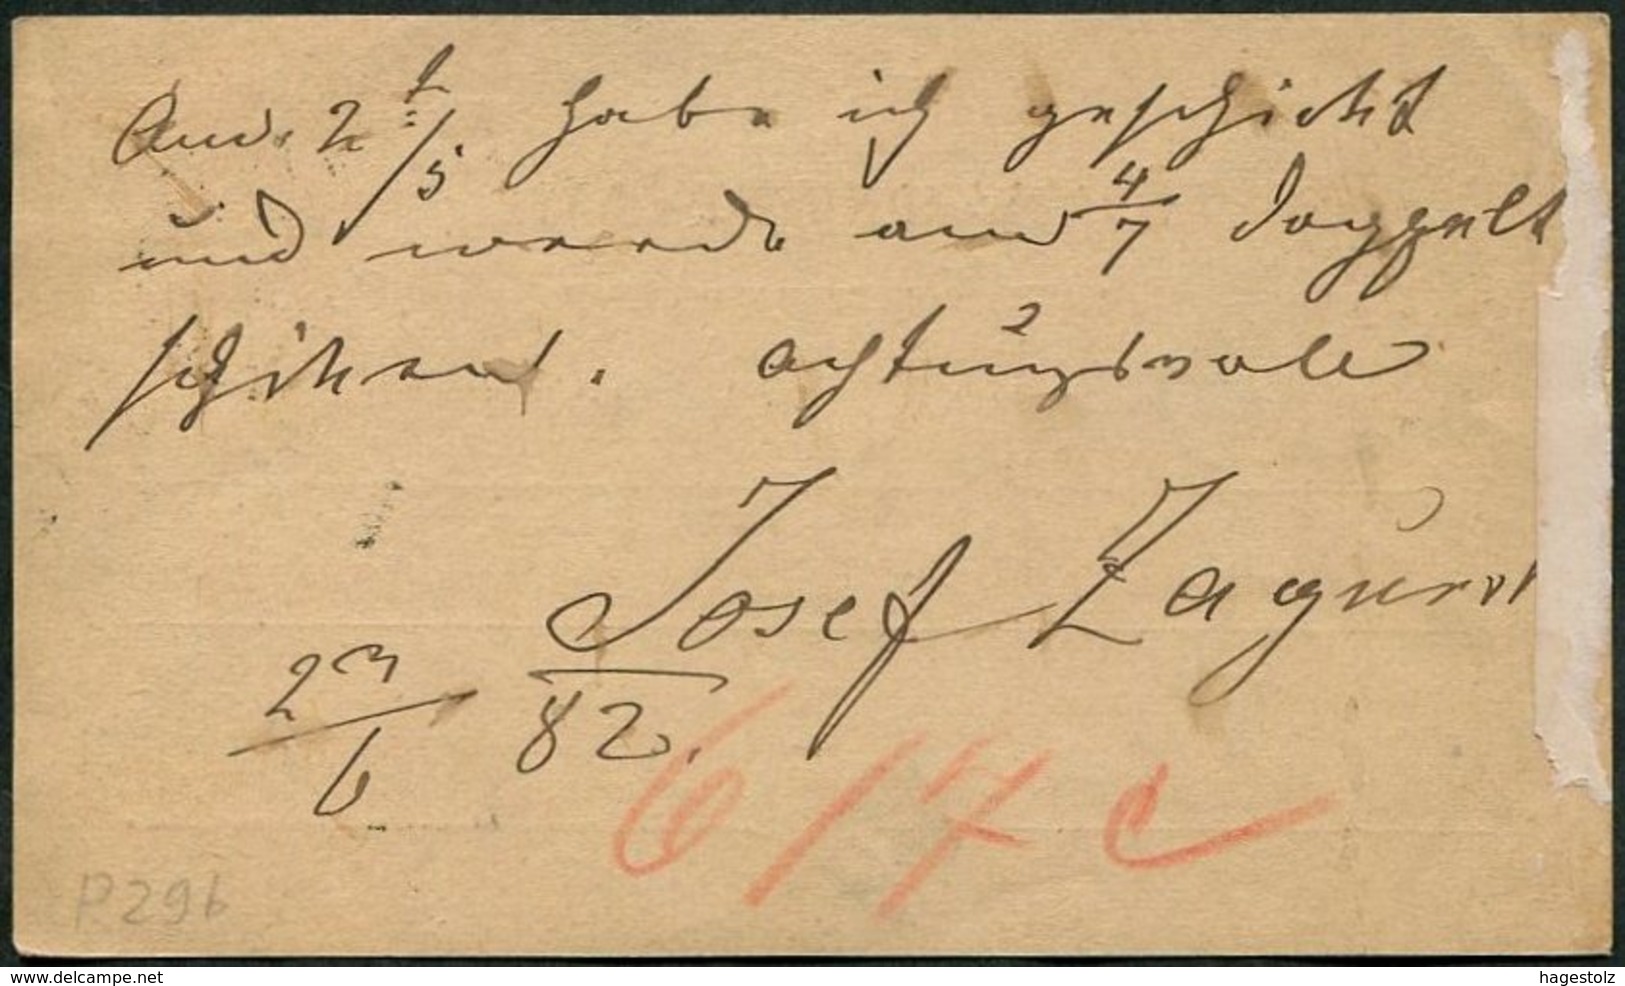 Am 2t/5 habe ich geschickt
und werde am 4/7 doppelt
schicken. Achtungsvoll
Josef Zagurs
23/6 82.
6/7 c
P29b
www.delcampe.net
hagestolz